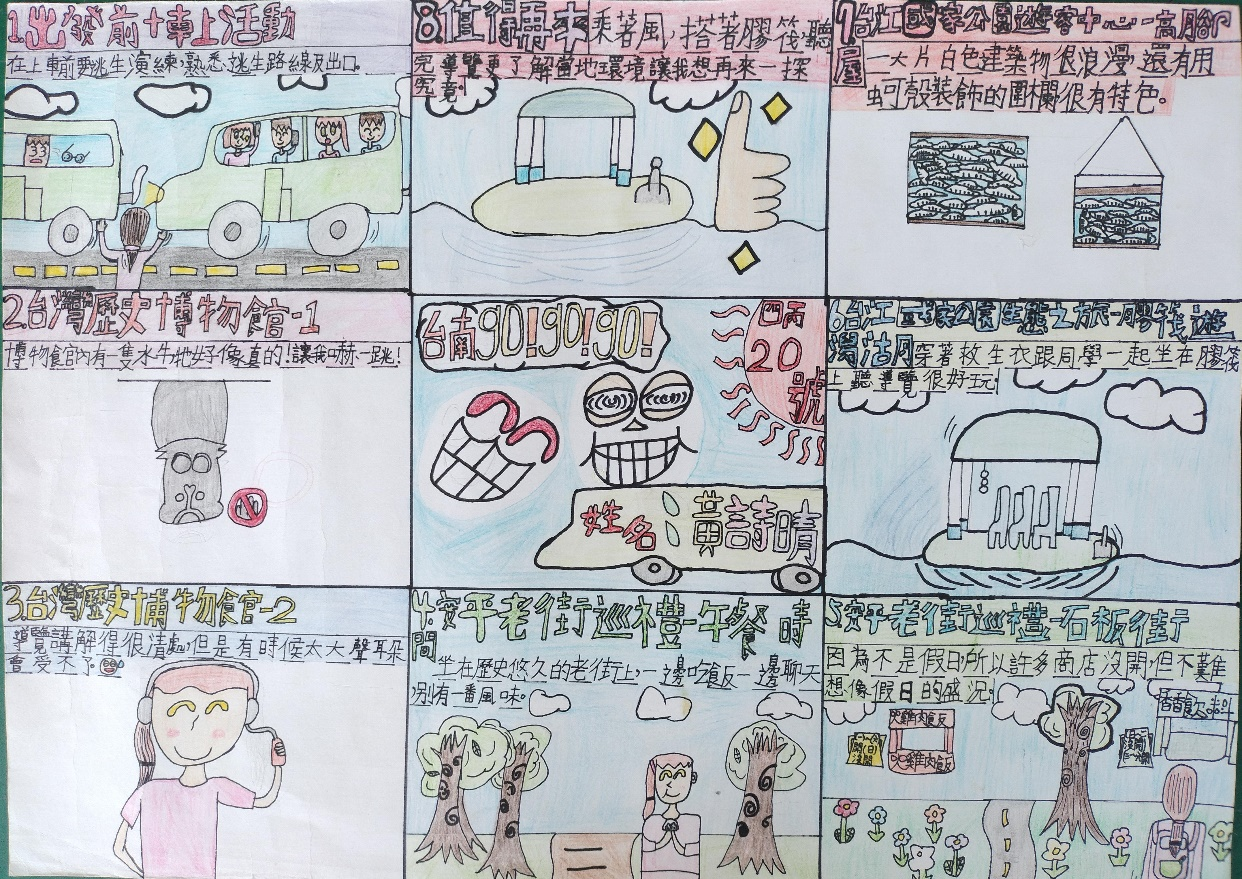 1.出發前+車上活動
在上車前要逃生演練,熟悉逃生路線及出口。
8.值得再來乘著風,搭著膠筏聽
完導覽更了解當地環境讓我想再來一探
究竟。
7台江國家公園遊客中心-高腳
屋一大片白色建築物很浪漫,還有用
蚵殼裝飾的圍欄很有特色。
2.台灣歷史博物館-1
博物館內有一隻水牛牠好像真的!讓我嚇一跳!
台南GO!GO!GO!
四丙
20
號
姓名:黃詩晴
6台江國家公園生態之旅-膠筏遊
潟沽月穿著救生衣跟同學一起坐在膠筏
上聽導覽很好玩
3.台灣歷史博物館-2
導覽講解得很清處,但是有時候太大聲耳朵
會受不了
4.安平老街巡禮-午餐時
間坐在歷史悠久的老街上,一邊吃飯一邊聊天
別有一番風味。
5安平老街巡禮-石板街
因為不是假日,所以許多商店沒開,但不難
想像假日的盛況。
火雞肉飯
火雞肉飯
香香飲料